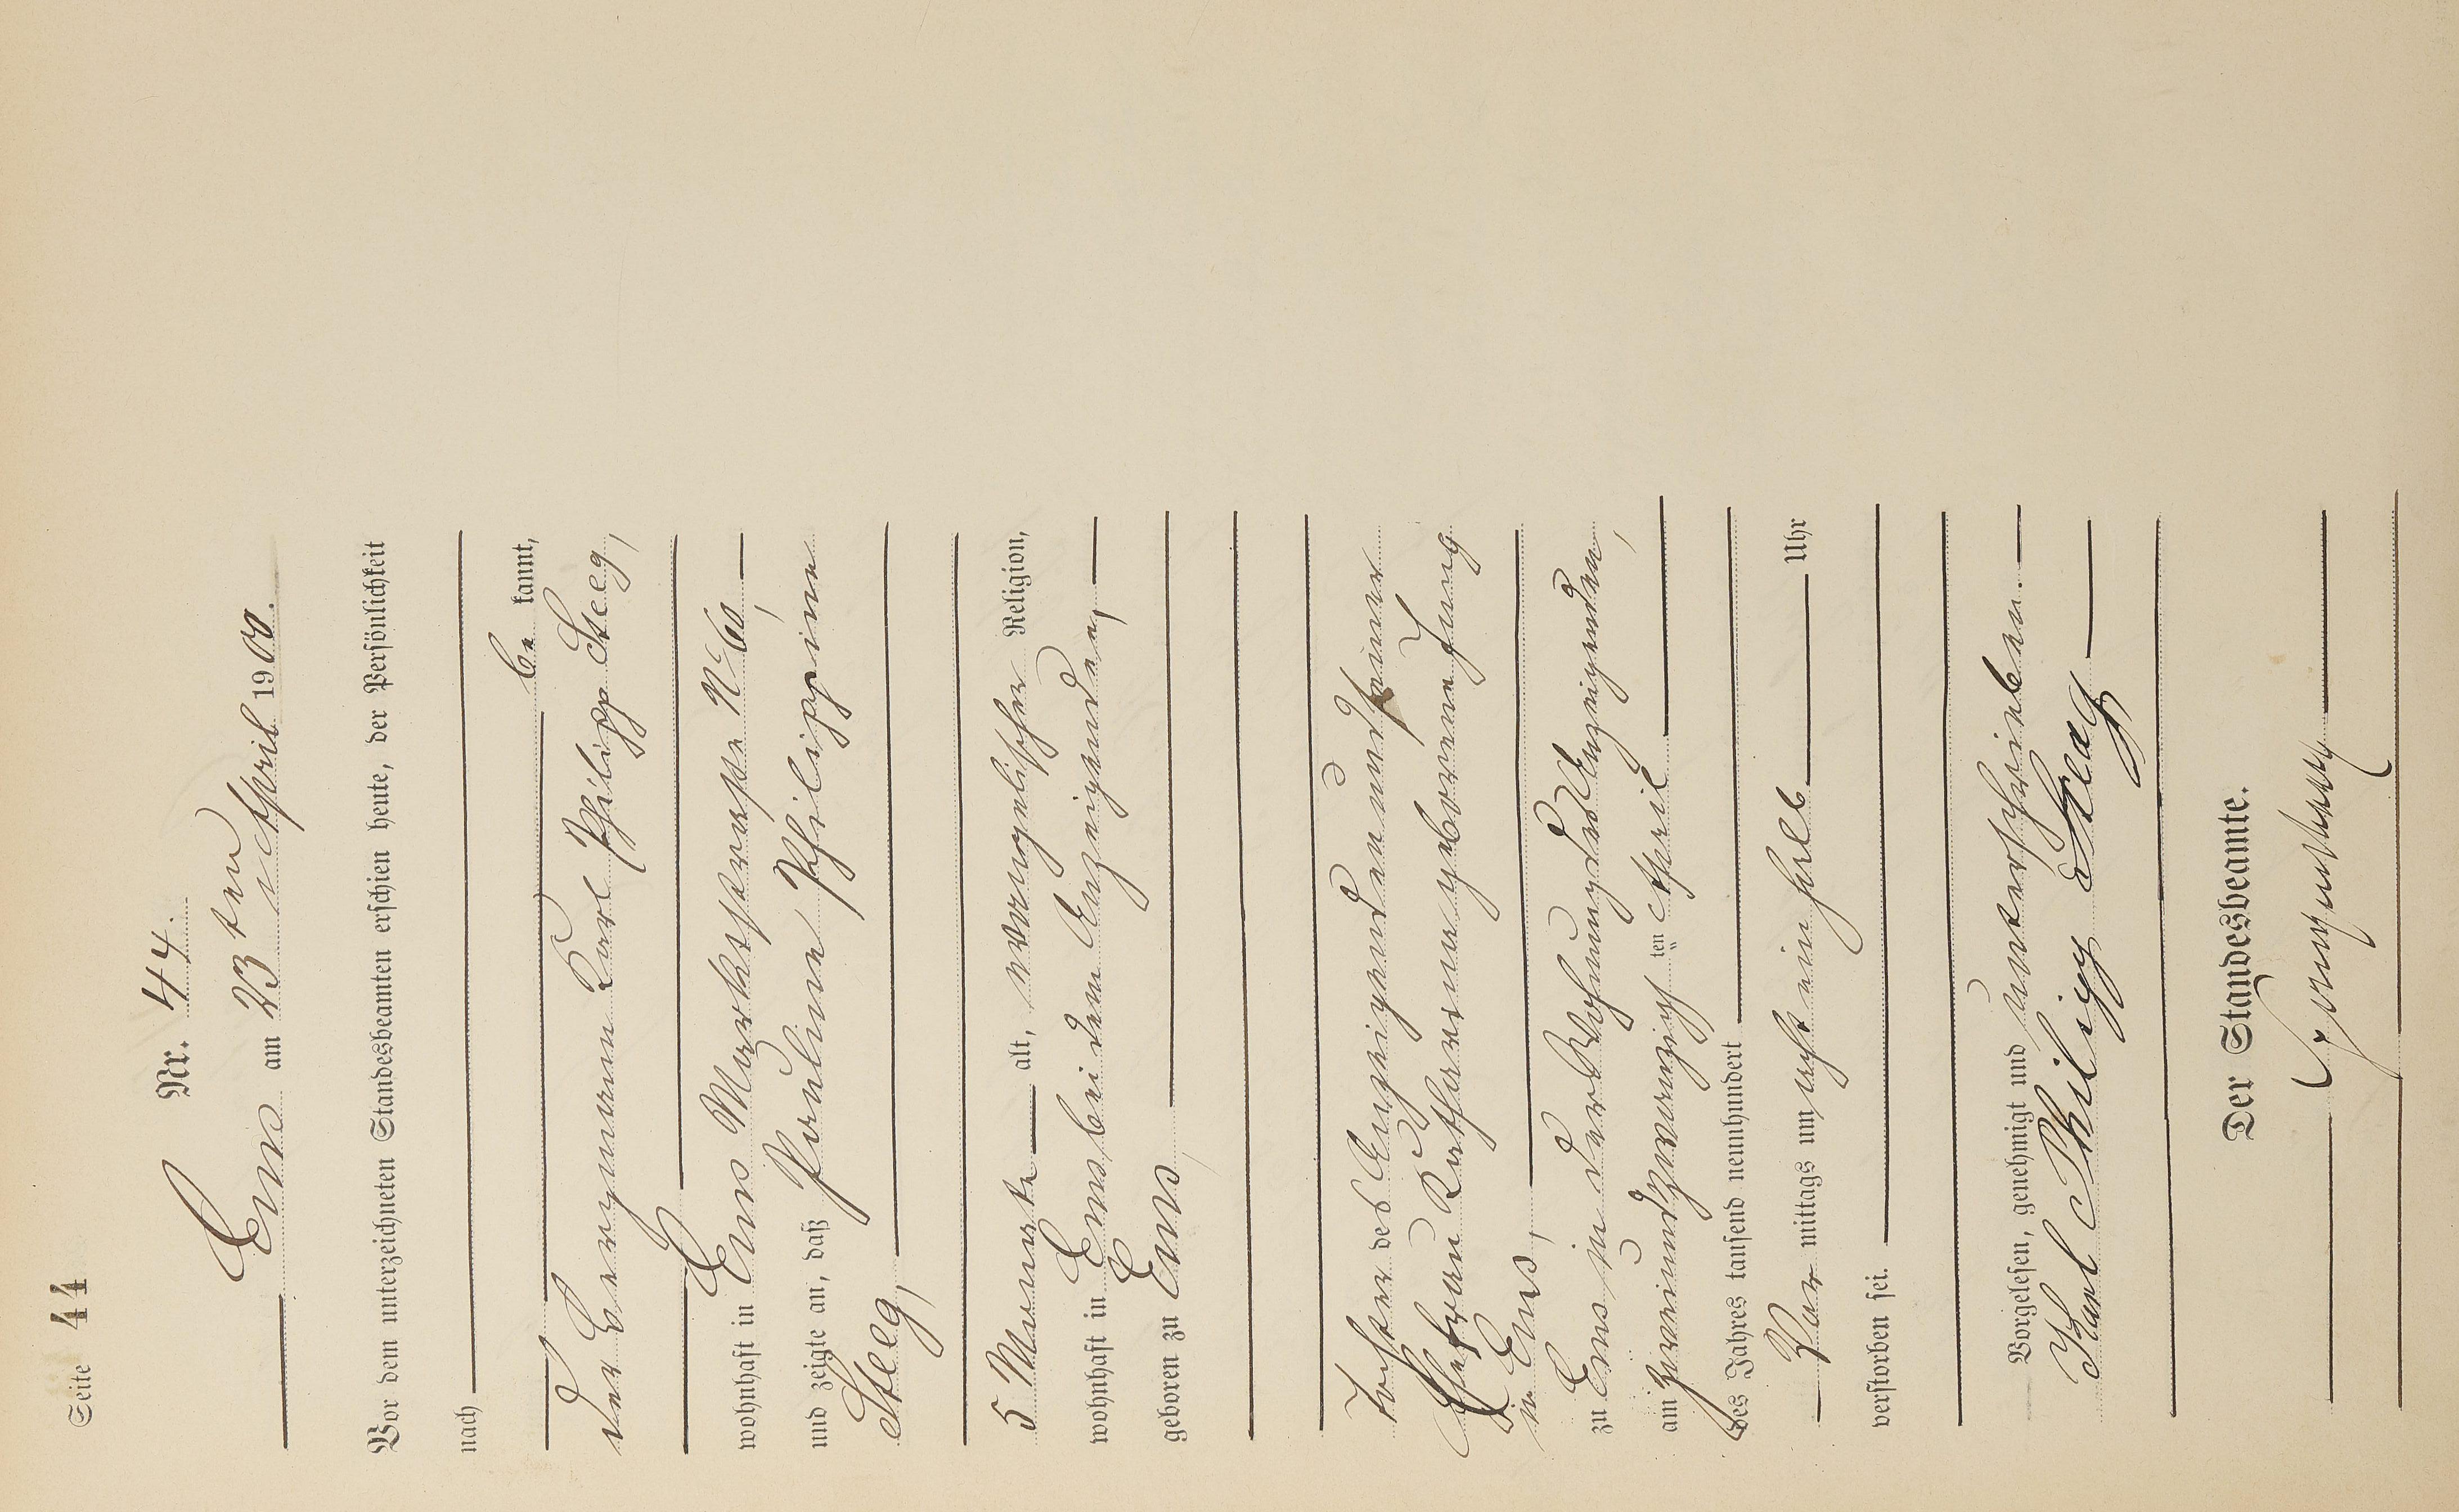 Seite 44
Nr. 44.
Ems am 23ten April 1900.
Vor dem unterzeichneten Standesbeamten erschien heute, der Persönlichkeit
nach
be kannt,
der Bergmann Karl Philipp Steeg,
wohnhaft in Ems Marktstrasse No 60,
und zeigte an, daß Pauline Philippine
Steeg,
5 Monate alt, evangelischer Religion,
wohnhaft in Ems bei dem Anzeigenden,
geboren zu Ems,
Tochter des Anzeigenden und seiner
Ehefrau Katharina geborene Jung
in Ems,
zu Ems in der Wohnung des Anzeigenden,
am zweiundzwanzigsten April
des Jahres tausend neunhundert
Vor mittags um acht ein halb Uhr
verstorben sei.
Vorgelesen, genehmigt und unterschrieben.
Karl Philipp Steeg
Der Standesbeamte.